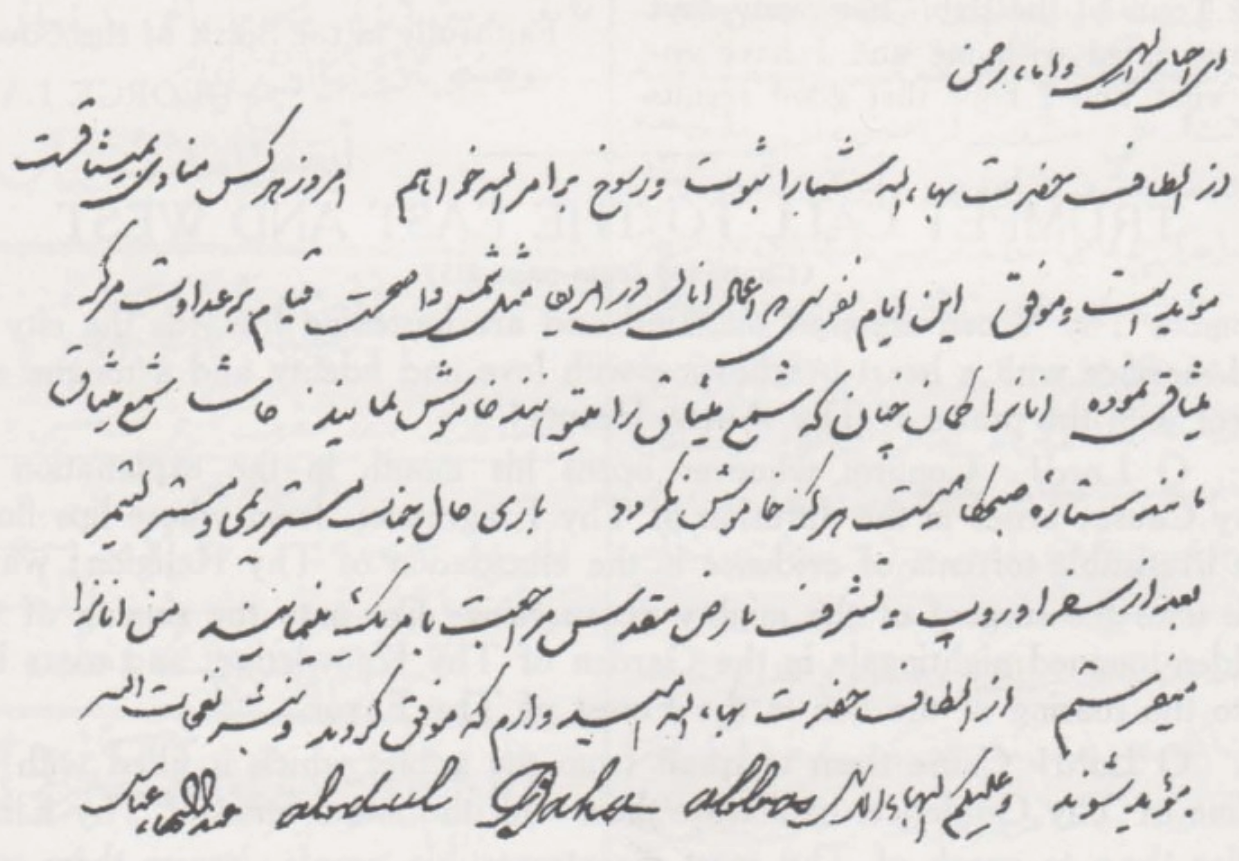 ای احبای الهی و اماء رحمن
از الطاف حضرت بهاءالله شما را ثبوت و رسوخ بر امر الله خواهم امروز هر کس منادی بمیثاقست
مؤید است و موفق این ایام نفوسی در امریکا مثل شمس و اصحت قیام بر عداوت مرکز
میثاق نموده اند آنانرا گمان چنان که شمع میثاق را میتوانند خاموش نمایند حاشا شمع میثاق
مانند ستاره صبحگاهیست هرگز خاموش نگردد باری حال جناب مستر ریمی و مستر
بعد از سفر اوروپ و تشرف بارض مقدس مراجعت بامریک مینمایند من آنانرا
میفرستم از الطاف حضرت بهاءالله امید وارم که موفق گردند و بنشر نفحات الله
مؤید شوند و علیکم البهاء الابهی abdul Baha abbas عبدالبهاء عباس